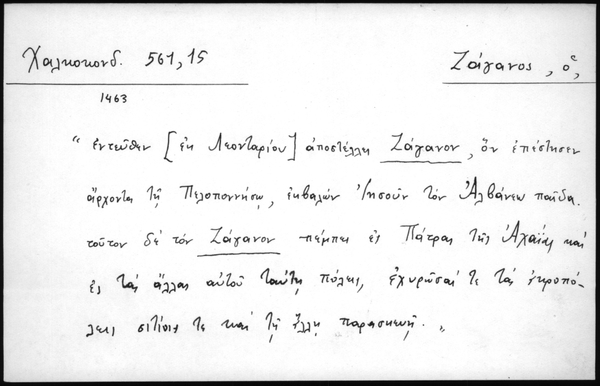 Χαλκοκονδ. 561,15
Ζάγανος, ὁ,
1463
"ἐντεῦθεν [ἐκ Λεονταρίου] ἀποστέλλει Ζάγανον, ὃν ἐπέστησεν
ἄρχοντα τῇ Πελοποννήσῳ, ἐκβαλὼν Ἰησοῦν τὸν Ἀλβάνεω παῖδα.
τοῦτον δὲ τὸν Ζάγανον πέμπει ἐς Πάτρας τῆς Ἀχαΐας καὶ
ἐς τὰς ἄλλας αὐτοῦ ταύτῃ πόλεις, ἐχυρῶσαί τε τὰς ἀκροπό-
λεις σιτίοις τε καὶ τῇ ἄλλῃ παρασκευῇ."